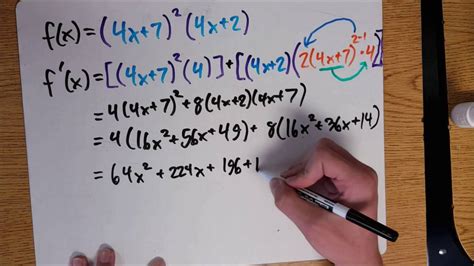 f(x) = (4x+7)²(4x+2)
f'(x) = [(4x+7)²(4)] + [(4x+2)(2(4x+7)²⁻¹·4)]
= 4(4x+7)² + 8(4x+2)(4x+7)
= 4(16x²+56x+49) + 8(16x²+36x+14)
= 64x² + 224x + 196 + 1